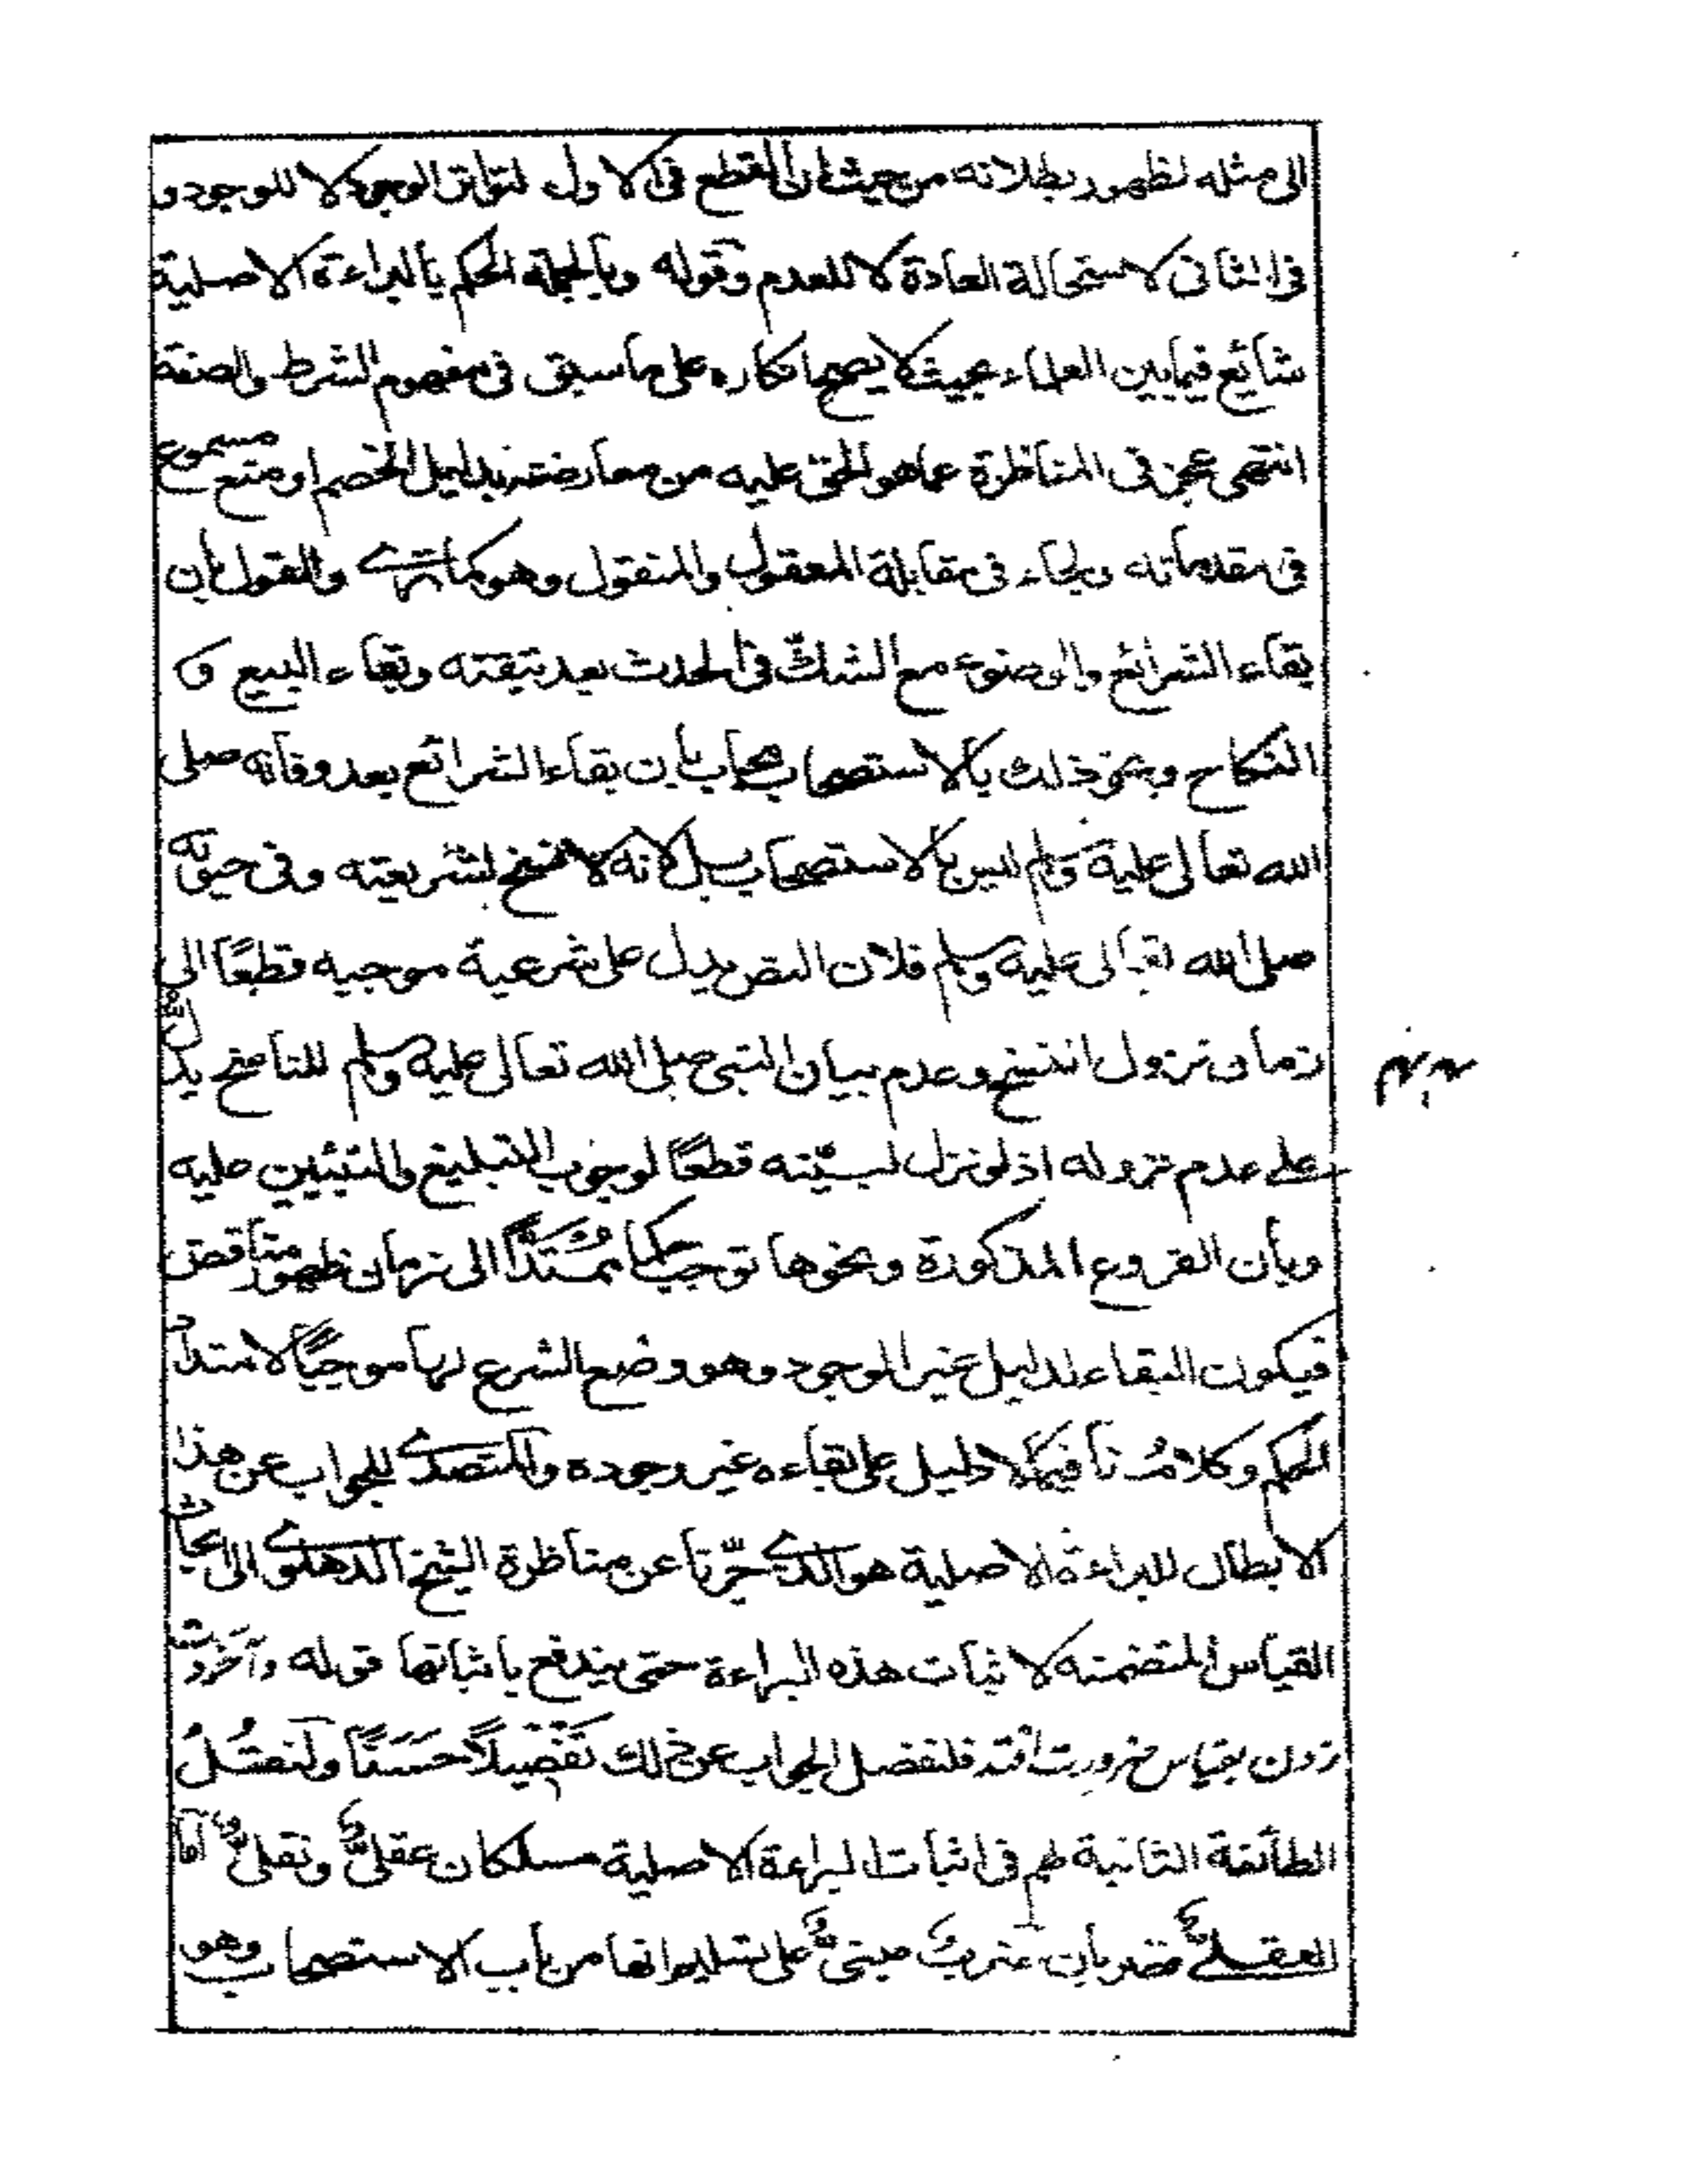 الى مثله لظهور بطلانه من حيث ان القطع فى الاول لتواتر الوجود لا للوجود و
فى الثانى لاستحالة العادة لا للعدم وقوله وبالجملة الحكم بالبراءة الاصلية
شائع فيما بين العلماء بحيث لا يصح انكاره على ما سبق فى مفهوم الشرط والصفة
انتهى عجز فى المناظرة عما هو الحق عليه من معارضته بدليل الخصم او منع مسموع
فى مقدماته ولجاء فى مقابلة المعقول والمنقول وهو كما ترى والقول بان
بقاء الشرائع والوضوء مع الشك فى الحدث بعد تيقنه وبقاء البيع و
النكاح ونحو ذلك بالاستصحاب مجاب بان بقاء الشرائع بعد وفاته صلى
الله تعالى عليه وسلم ليس بالاستصحاب بل لانه لا نسخ لشريعته وفى حيوته
صلى الله تعالى عليه وسلم فلان النص يدل على شرعية موجبه قطعًا الى
زمان نزول النسخ وعدم بيان النبى صلى الله تعالى عليه وسلم للناسخ يدل
على عدم نزوله اذ لو نزل لبيّنه قطعًا لوجوب التبليغ والتبيين عليه
وبأن الفروع المذكورة ونحوها توجب حكما ممُتَدًّا الى زمان ظهور مناقض
فيكون البقاء لدليل غير الموجود وهو وضع الشرع لها موجبًا لامتداد
الحكم وكلامُنا فيما لا دليل على بقاءه غير وجوده والمتصدى للجواب عن هذا
الابطال للبراءة الاصلية هو الذى جرّنا عن مناظرة الشيخ الدهلوى الى ابحاث
القياس المتضمنه لاثبات هذه البراءة حتى يندفع باثباتها قوله وآخرون
ازدن بقياس ضرورت افتد فلنفصل الجواب عن ذلك تَفْصِيلًا حسَنًا ولنقُلْ
الطائفة الثانية لهم فى اثبات البراءة الاصلية مسلكان عقلىٌّ ونقلىٌّ اما
العقلىُّ فضربان ضربٌ مبنىٌّ على تسليم انها من باب الاستصحاب وهو